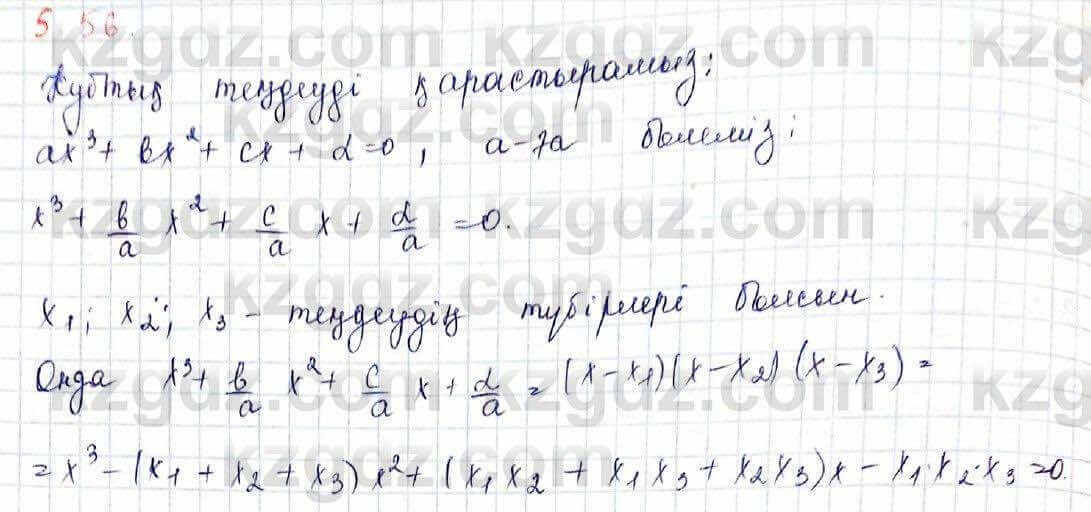 5.56.
Кубтық теңдеуді қарастырамыз:
ax³ + bx² + cx + d = 0, a-ға бөлеміз:
x³ + b/a x² + c/a x + d/a = 0.
x₁; x₂; x₃ - теңдеудің түбірлері болсын.
Онда x³ + b/a x² + c/a x + d/a = (x - x₁)(x - x₂)(x - x₃) =
= x³ - (x₁ + x₂ + x₃)x² + (x₁x₂ + x₁x₃ + x₂x₃)x - x₁·x₂·x₃ = 0.
kzgdz.com